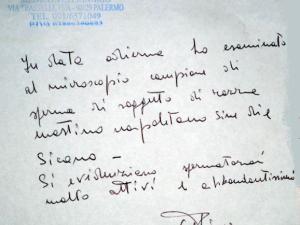 90129 PALERMO
TEL. 091/6571049
In data odierna ho esaminato
al microscopio campione di
sperma di soggetto di razza
mastino napoletano
Sicano -
Si evidenziano spermatozoi
molto attivi e abbondantissimi